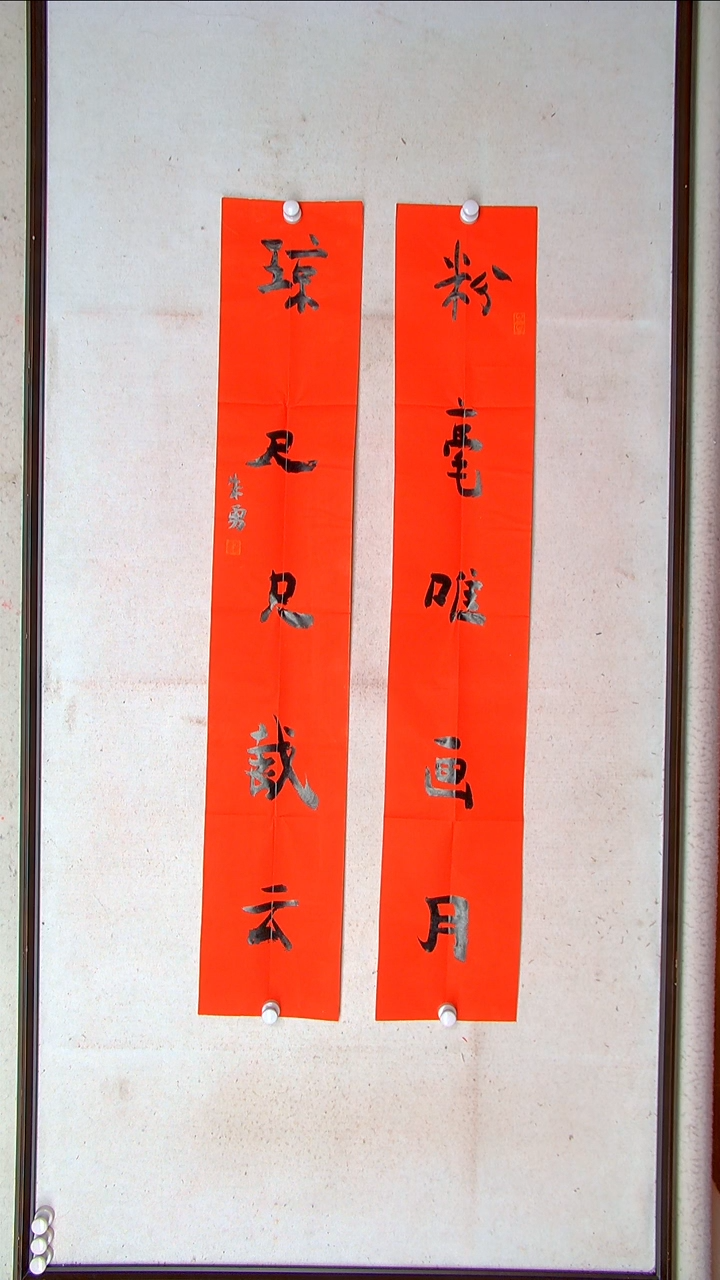 粉毫唯画月
琼尺只裁云
朱勇